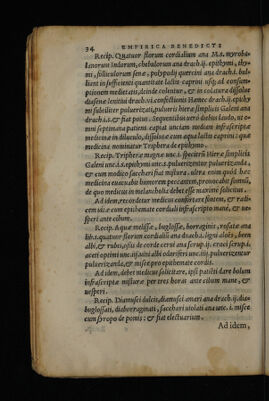 34 EMPIRICA BENEDICTI
Recip. Quatuor florum cordialium ana M.s. myroba-
lanorum Indorum, chebulorum ana drach.ij. epithymi, thy-
mi, folliculorum senæ, polypodij quercini ana drach.i. bul-
liant in sufficienti quantitate lactis caprini usq; ad consum-
ptionem medietatis, deinde colentur, & in colatura dissolue
diasenæ lenitiui drach.vi. confectionis Hamec drach.ij. epithy-
mi subtiliter puluerizati, pulueris hieræ simplicis Galeni ana
drach.i.s. & fiat potus. Sequentibus uerò diebus laudo, ut o-
mni septimana patiens capiat unciam unam infrascriptæ
medicinæ in diluculo, dissolutæ cum aqua lactis caprini: quæ
medicina nominatur benedicta.
Recip. Tripheræ magnæ unc.i. specierū Hieræ simplicis
Galeni unc.i.s. epithymi unc.s. puluerizentur puluerizanda,
& cum modico sacchari fiat mistura. ultra enim quòd hæc
medicina euacuabit humorem peccantem, prouocabit somnū,
de quo medicus in melancholia debet esse maximè solicitus.
Ad idem, recordetur medicus confortare sentem, & ratio-
nem uirtutis cum epithemate cordiali infrascripto mane, & ue-
speri.
Recip. Aquæ melissæ, buglossæ, borraginis, rosatæ ana
lib.s. quatuor florum cordialium ana drach.i. ligni aloës, been
albi, & rubei, ossis de corde cerui ana scrup.ij. croci scrup.i.
aceti optimi unc.iij. uini albi odoriferi unc.iiij. puluerizentur
pulueri​zanda, & misce pro epithemate cordis.
Ad idem, debet medicus solicitare, ipsi patiēti dare bolum
infrascriptæ misturæ per tres horas ante cibum mane, &
uesperi.
Recip. Diamusci dulcis, diamusci amari ana drach.ij. dia-
buglossati, diaborraginati, sacchari uiolati ana unc.i. misce
cum syropo de pomis: & fiat electuarium.
Ad idem,